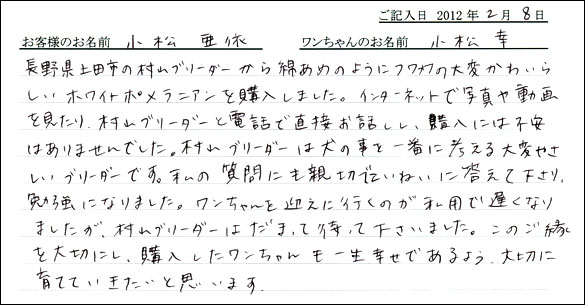 ご記入日 2012 年 2 月 8 日
お客様のお名前 小松 亜依 ワンちゃんのお名前 小松 幸
長野県上田市の村山ブリーダーから綿あめのようにフワフワの大変かわいら
しいホワイトポメラニアンを購入しました。インターネットで写真や動画
を見たり、村山ブリーダーと電話で直接お話しし、購入には不安
はありませんでした。村山ブリーダーは犬の事を一番に考える大変やさ
しいブリーダーです。私の質問にも親切でいねいに答えて下さり、
勉強になりました。ワンちゃんを迎えに行くのが私用で遅くなり
ましたが、村山ブリーダーはだまって待って下さいました。このご縁
を大切にし、購入したワンちゃんを一生幸せであるよう、大切に
育てていきたいと思います。